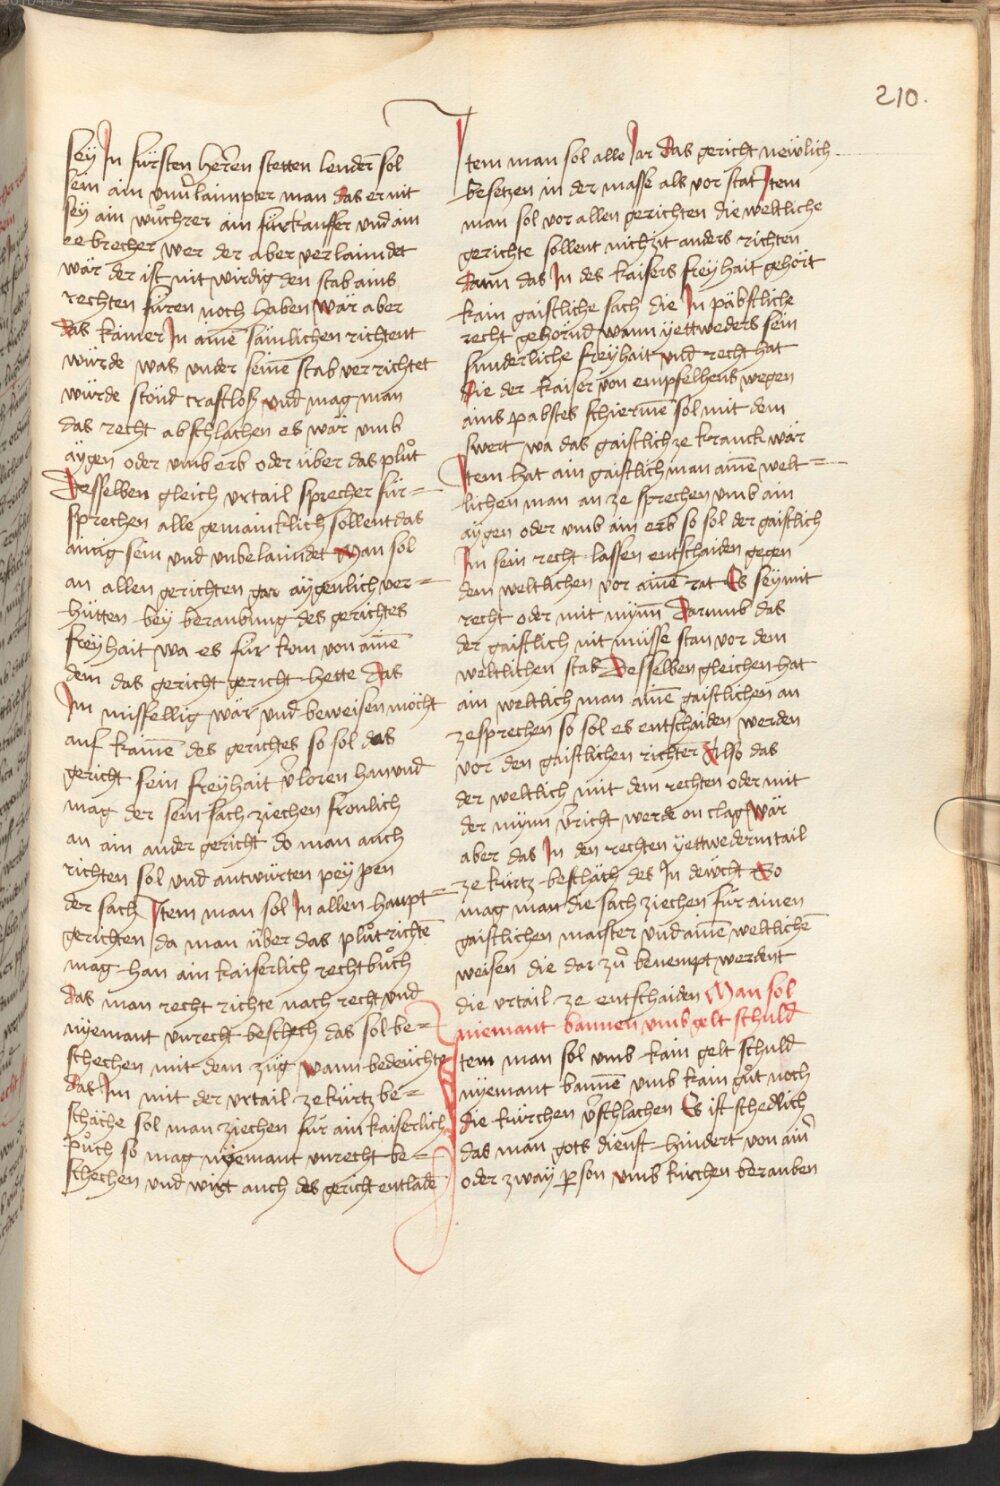 210.
sey In fürsten herren stetten lendern sol
sein ain vnverlaimpter man das er nit
sey ain wůchrer ain fürkauffer vnd ain
eebrecher wer der aber verlaimdet
wär der ist nit wirdig den stab ains
rechten füren noch haben wär aber
das kainer In ainem sämlichen richtent
würde was vnder seinem stab verrichtet
würde stönd crafftloß vnd mag man
das recht abschlachen es wär vmb
aygen oder vmb erb oder über das plůt
Desselben gleich vrtail sprecher für=
sprechen alle gemaincklich sollent das
aintzig sein vnd vnbelaimdet Man sol
an allen gerichten gar aygenlich ver=
hütten bey beraubung des gerichtes
freyhait wa es für kom von ainem
dem das gericht gericht hette das
Im missfellig wär vnd beweisen möcht
auf kainem des gerichtes so sol das
gericht sein freyhait v̓loren han vnd
mag der sein sach ziechen fronlich
an ain ander gericht do man auch
richten sol vnd antwürten pey pen
der sach Item man sol In allen haupt=
gerichten da man über das plůt richten
mag han ain kaiserlich rechtbůch
das man recht richte nach recht vnd
nyemant vnrecht beschech das sol be=
schechen mit dem züg wann bedeuchte
das Im mit der vrtail ze kürtz be=
schäche sol man ziechen für ain kaiserlich
půch so mag nyemant vnrecht be=
schechen vnd wirt auch des gericht entladen
Item man sol alle Jar das gericht newlich
besetzen in der masse als vor stat Item
man sol vor allen gerichten die weltliche
gerichte sollent nichtzit anders richten
dann das In des kaisers freyhait gehört
kain gaistliche sach die In päbstliche
recht gehörnd wann yettweders sein
sunderliche freyhait vnd recht hat
die der kaiser von empfelhens wegen
ains pabstes schiermen sol mit dem
swert wa das gaistlich ze kranck wär
Item hat ain gaistlich man ainem welt=
lichen man an ze sprechen vmb ain
aygen oder vmb ain erb so sol der gaistlich
Im sein recht lassen entschaiden gegen
dem weltlichen vor ainem rat Es sey mit
recht oder mit mynn Darumb das
der gaistlich nit müsse stan vor dem
weltlichen stab Desselben gleichen hat
ain weltlich man ainem gaistlichen an
ze sprechen so sol es entschaiden werden
vor den gaistlichen richter Also das
der weltlich mit dem rechten oder mit
der mynn v̓richt werde on clag wär
aber das In den rechten yettwederm tail
ze kürtz beschäch des In deücht So
mag man die sach ziechen für ainen
gaistlichen maister vnd ainem weltlichen
weisen die dar zů benempt werdent
die vrtail ze entschaiden Man sol
niemant bannen vmb gelt schuld
Item man sol vmb kain gelt schuld
nyemant bannen vmb kain gůt noch
die kürchen v̓schlachen Es ist schedlich
das man gots dienst hindert von ain̓
oder zway person vmb kirchen berauben